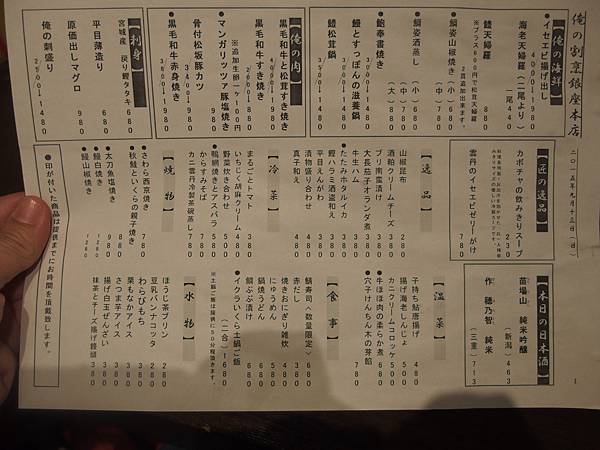 俺の割烹銀座本店
二〇一五年九月十三日(日)
1
【俺の海鮮】
●イセエビ揚げ出し
4000→1980
海老天婦羅(二尾より)
一尾440
鱧天婦羅 880
鯛姿山椒焼き(小)680
(中)780
鯛姿酒蒸し(小)680
(中)780
(大)880
●鮑奉書焼き
鰻とすっぽんの滋養鍋
鱧松茸鍋
【俺の肉】
黒毛和牛と松茸すき焼き
黒毛和牛すき焼き
※追加生卵一ヶ100円
●マンガリッツァ豚塩焼き
骨付松阪豚カツ
●黒毛和牛赤身焼き
【刺身】
宮城産 戻り鰹タタキ 680
平目薄造り 980
原価出しマグロ 980
俺の刺盛り
2500→1480
【匠の逸品】
カボチャの飲みきりスープ 230
雲丹のイセエビゼリーがけ 680
【逸品】
山椒昆布 280
酒粕クリームチーズ 380
大長茄子オランダ煮 380
牛生ハム 580
●たたみホタルイカ 380
平目えんがわ 380
漬物盛り合わせ 480
真子和え 380
【冷菜】
まるごとトマト 380
いちじく胡麻クリーム 380
野菜炊き合わせ 500
●鴨網焼きとアスパラ 550
からすみそば 780
カニ雲丹冷製茶碗蒸し 780
【焼物】
●さわら西京焼き 780
●秋鮭といくらの親子焼き
●太刀魚塩焼き 980
●鰻白焼き 1280
●鰻山椒焼き 1280
●印が付いた商品は提供までにお時間を頂戴致します。
【本日の日本酒】
苗場山 純米吟醸
(新潟)463
作 穂乃智 純米
(三重)713
【温菜】
子持ち鮎唐揚げ 480
揚げ海老しんじょ 500
カニクリームコロッケ 500
●牛ほほ肉の柔らか煮 680
●穴子けんちん木の芽餡 780
【食事】
鯖寿司<数量限定> 680
赤だし 380
焼きおにぎり雑炊 480
にゅうめん 480
鯛焼うどん 680
鯛ぶぶ漬け 680
●イクラいくら土鍋ご飯
(二合)1680
※土鍋ご飯は提供に50分程頂きます。
【水物】
ほうじ茶プリン 280
豆乳パンナコッタ 280
わらびもち 380
栗もなかアイス 380
さつま芋アイス 380
揚げ白玉ぜんざい 380
抹茶とチーズ揚げ饅頭 380